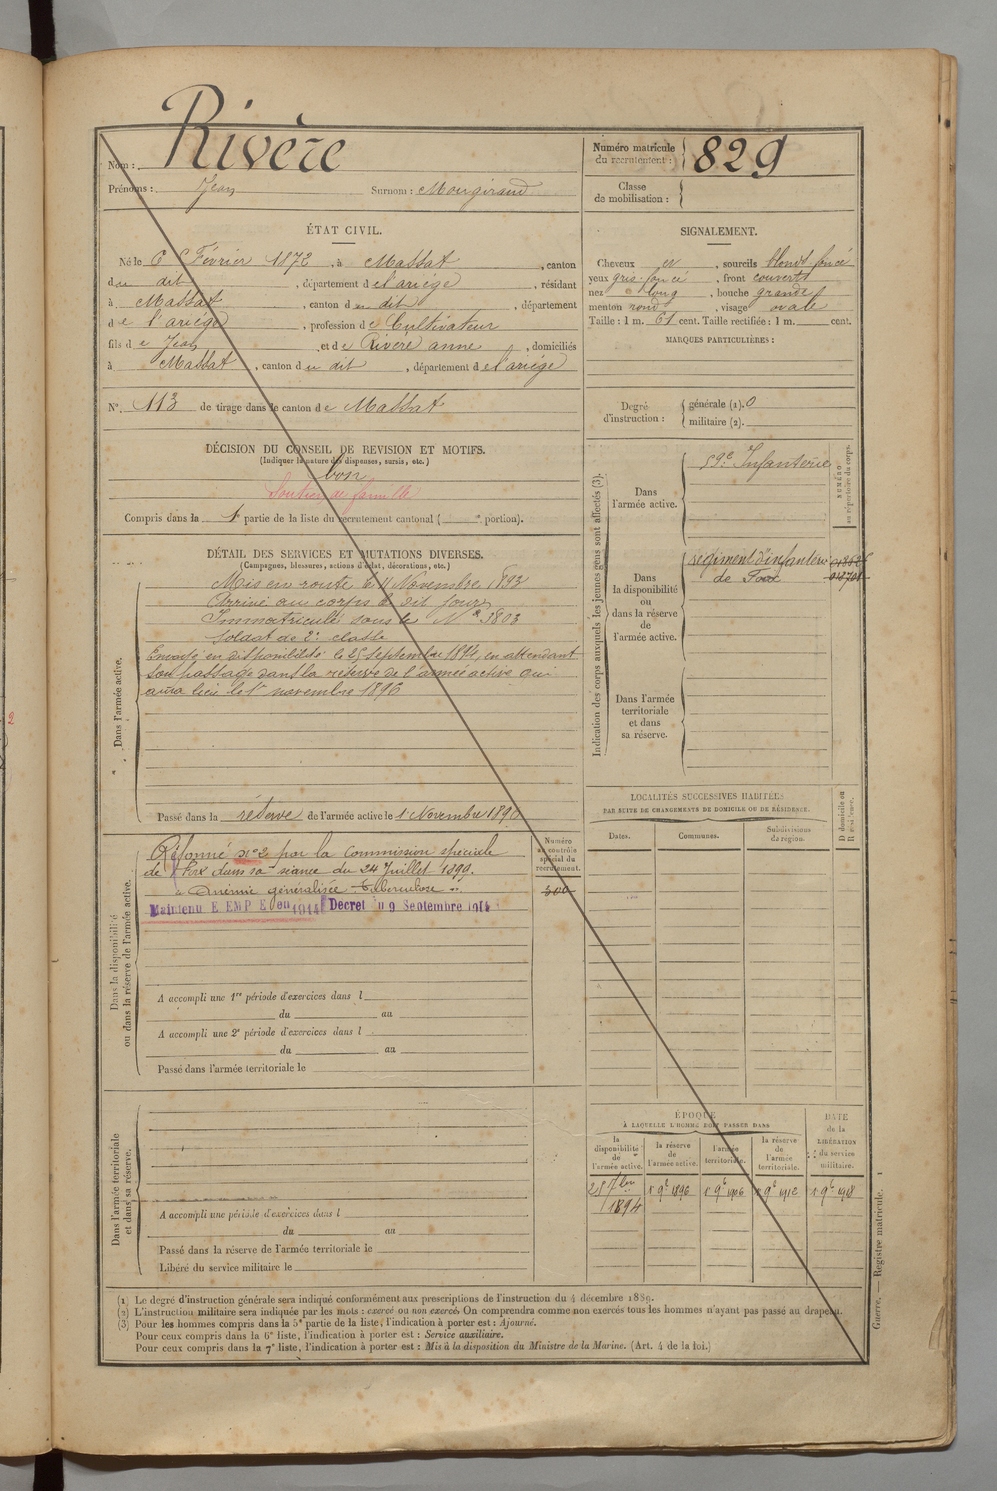 Nom : Rivère
Prénoms : Jean Surnom : Mougiraud
Numéro matricule du recrutement : 829
Classe de mobilisation :
ÉTAT CIVIL.
Né le 6 Février 1872, à Massat, canton
du dit, département de l'ariége, résidant
à Massat, canton du dit, département
de l'ariége, profession de Cultivateur
fils de Jean et de Rivere anne, domiciliés
à Massat, canton du dit, département de l'ariége
N° 113 de tirage dans le canton de Massat
SIGNALEMENT.
Cheveux et, sourcils blonds foncé
yeux gris foncé, front couvert
nez long, bouche grande
menton rond, visage ovale
Taille : 1 m. 61 cent. Taille rectifiée : 1 m. cent.
MARQUES PARTICULIÈRES :
Degré d'instruction : générale (1). 0
militaire (2).
DÉCISION DU CONSEIL DE REVISION ET MOTIFS.
(Indiquer la nature des dispenses, sursis, etc.)
bon
Soutien de famille
Compris dans la 1 partie de la liste du recrutement cantonal ( portion).
DÉTAIL DES SERVICES ET MUTATIONS DIVERSES.
(Campagnes, blessures, actions d'éclat, décorations, etc.)
Dans l'armée active.
Mis en route le 11 Novembre 1893
Arrivé au corps le dit jour
Immatriculé sous le N° 3803
Soldat de 2e classe
Envoyé en disponibilité le 25 septembre 1894, en attendant
son passage dans la réserve de l'armée active qui
aura lieu le 1er novembre 1896
Passé dans la réserve de l'armée active le 1 Novembre 1896
Indication des corps auxquels les jeunes gens sont affectés (3).
NUMÉRO au répertoire du corps.
Dans l'armée active.
59e Infanterie
Dans la disponibilité ou dans la réserve de l'armée active.
regiment d'infanterie
de Foix
Dans l'armée territoriale et dans sa réserve.
LOCALITÉS SUCCESSIVES HABITÉES
PAR SUITE DE CHANGEMENTS DE DOMICILE OU DE RÉSIDENCE.
Dates. Communes. Subdivisions de région. D domicile ou R résidence.
Dans la disponibilité ou dans la réserve de l'armée active.
Réformé N°2 par la Commission spéciale
de Foix dans sa séance du 24 Juillet 1899.
Anémie généralisée
Maintenu E EMP E en 1914 Decret du 9 Septembre 1914
Numéro au contrôle spécial du recrutement.
300
A accompli une 1re période d'exercices dans l
du au
A accompli une 2e période d'exercices dans l
du au
Passé dans l'armée territoriale le
Dans l'armée territoriale et dans sa réserve.
A accompli une période d'exercices dans l
du au
Passé dans la réserve de l'armée territoriale le
Libéré du service militaire le
ÉPOQUE
À LAQUELLE L'HOMME DOIT PASSER DANS
la disponibilité de l'armée active.
la réserve de l'armée active.
l'armée territoriale.
la réserve de l'armée territoriale.
DATE de la LIBÉRATION du service militaire.
25 7bre 1894
1 9e 1896
1 9e 1906
1 9e 1912
1 9e 1918
(1) Le degré d'instruction générale sera indiqué conformément aux prescriptions de l'instruction du 4 décembre 1889.
(2) L'instruction militaire sera indiquée par les mots : exercé ou non exercé. On comprendra comme non exercés tous les hommes n'ayant pas passé au drapeau.
(3) Pour les hommes compris dans la 5e partie de la liste, l'indication à porter est : Ajourné.
Pour ceux compris dans la 6e liste, l'indication à porter est : Service auxiliaire.
Pour ceux compris dans la 7e liste, l'indication à porter est : Mis à la disposition du Ministre de la Marine. (Art. 4 de la loi.)
Guerre. — Registre matricule.